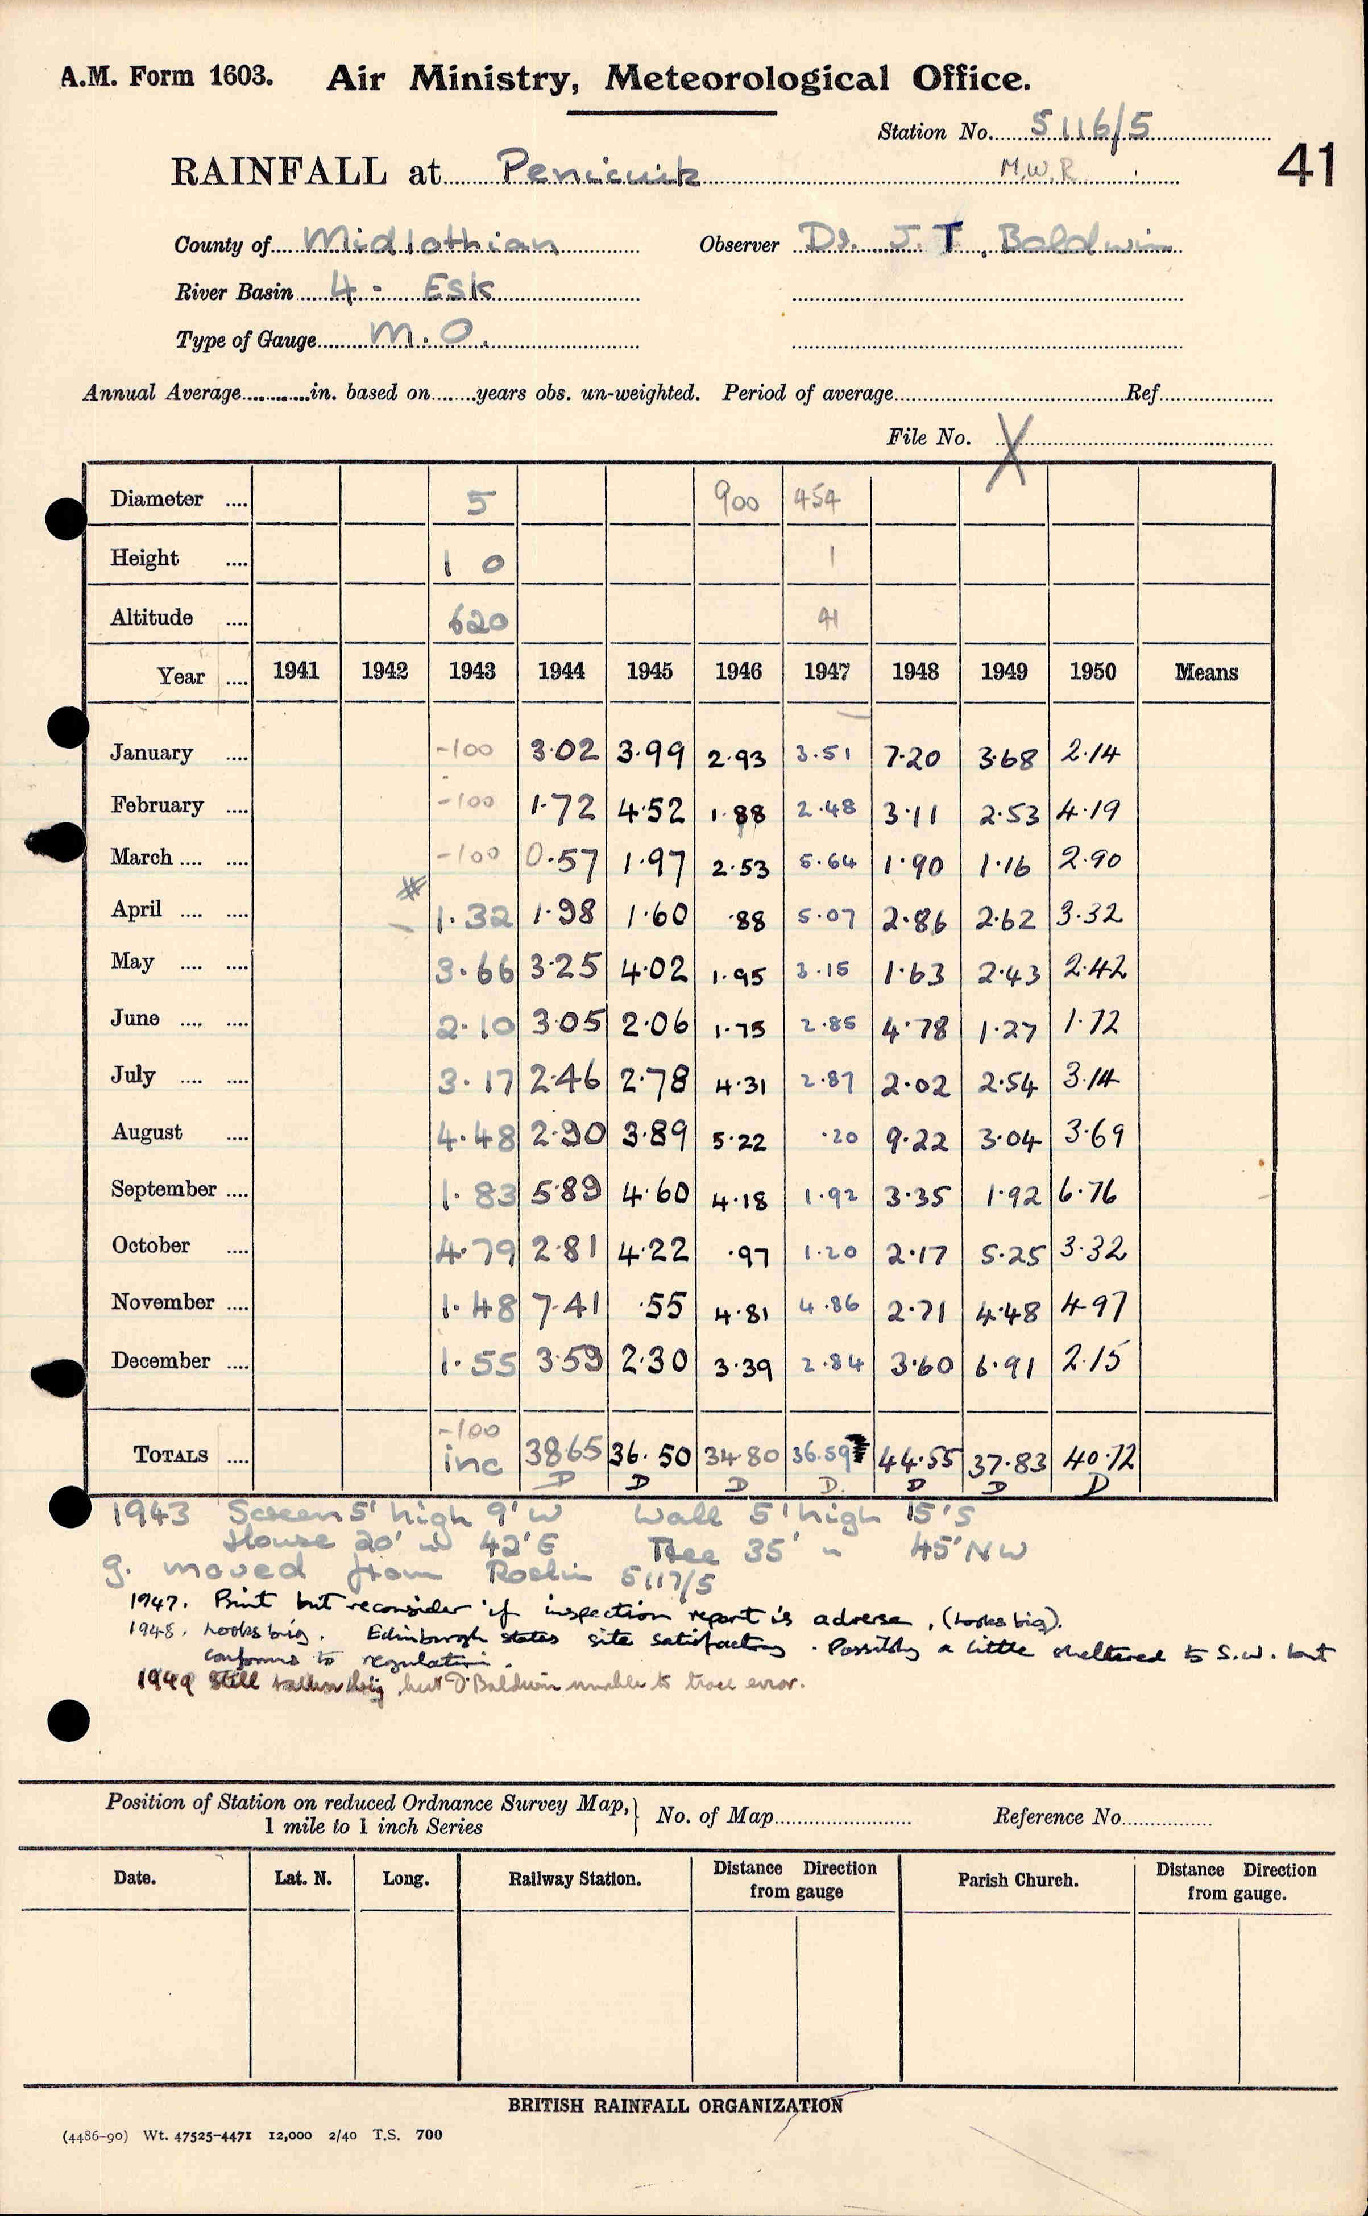 A.M. Form 1603. Air Ministry, Meteorological Office.
Station No. 5116/5
41
RAINFALL at Penicuik M.W.R.
County of Midlothian Observer Dr. J. T. Baldwin
River Basin 4 - Esk
Type of Gauge M.O.
Annual Average in. based on years obs. un-weighted. Period of average Ref
File No. X
Diameter 5 900 454
Height 1 0 1
Altitude 620 41
Year 1941 1942 1943 1944 1945 1946 1947 1948 1949 1950 Means
January -100 3.02 3.99 2.93 3.51 7.20 3.68 2.14
February -100 1.72 4.52 1.88 2.48 3.11 2.53 4.19
March -100 0.57 1.97 2.53 5.64 1.90 1.16 2.90
April 1.32 1.98 1.60 .88 5.07 2.86 2.62 3.32
May 3.66 3.25 4.02 1.95 3.15 1.63 2.43 2.42
June 2.10 3.05 2.06 1.75 2.85 4.78 1.27 1.72
July 3.17 2.46 2.78 4.31 2.87 2.02 2.54 3.14
August 4.48 2.90 3.89 5.22 .20 9.22 3.04 3.69
September 1.83 5.89 4.60 4.18 1.92 3.35 1.92 6.76
October 4.79 2.81 4.22 .97 1.20 2.17 5.25 3.32
November 1.48 7.41 .55 4.81 4.86 2.71 4.48 4.97
December 1.55 3.59 2.30 3.39 2.84 3.60 6.91 2.15
-100
TOTALS inc 38.65 36.50 34.80 36.59 44.55 37.83 40.72
D D D D. D D D
1943 Screen 5' high 9' W Wall 5' high 15' S
House 20' " 42' E Tree 35' " 45' NW
g. moved from Roslin 5117/5
1947. Print but reconsider if inspection report is adverse. (looks big).
1948. Looks big. Edinburgh states site satisfactory. Possibly a little sheltered to S.W. but
conforms to regulation.
1949 Still rather big, but Dr Baldwin unable to trace error.
Position of Station on reduced Ordnance Survey Map, 1 mile to 1 inch Series No. of Map Reference No.
Date. Lat. N. Long. Railway Station. Distance Direction from gauge Parish Church. Distance Direction from gauge.
BRITISH RAINFALL ORGANIZATION
(4486-90) Wt. 47525-4471 12,000 2/40 T.S. 700